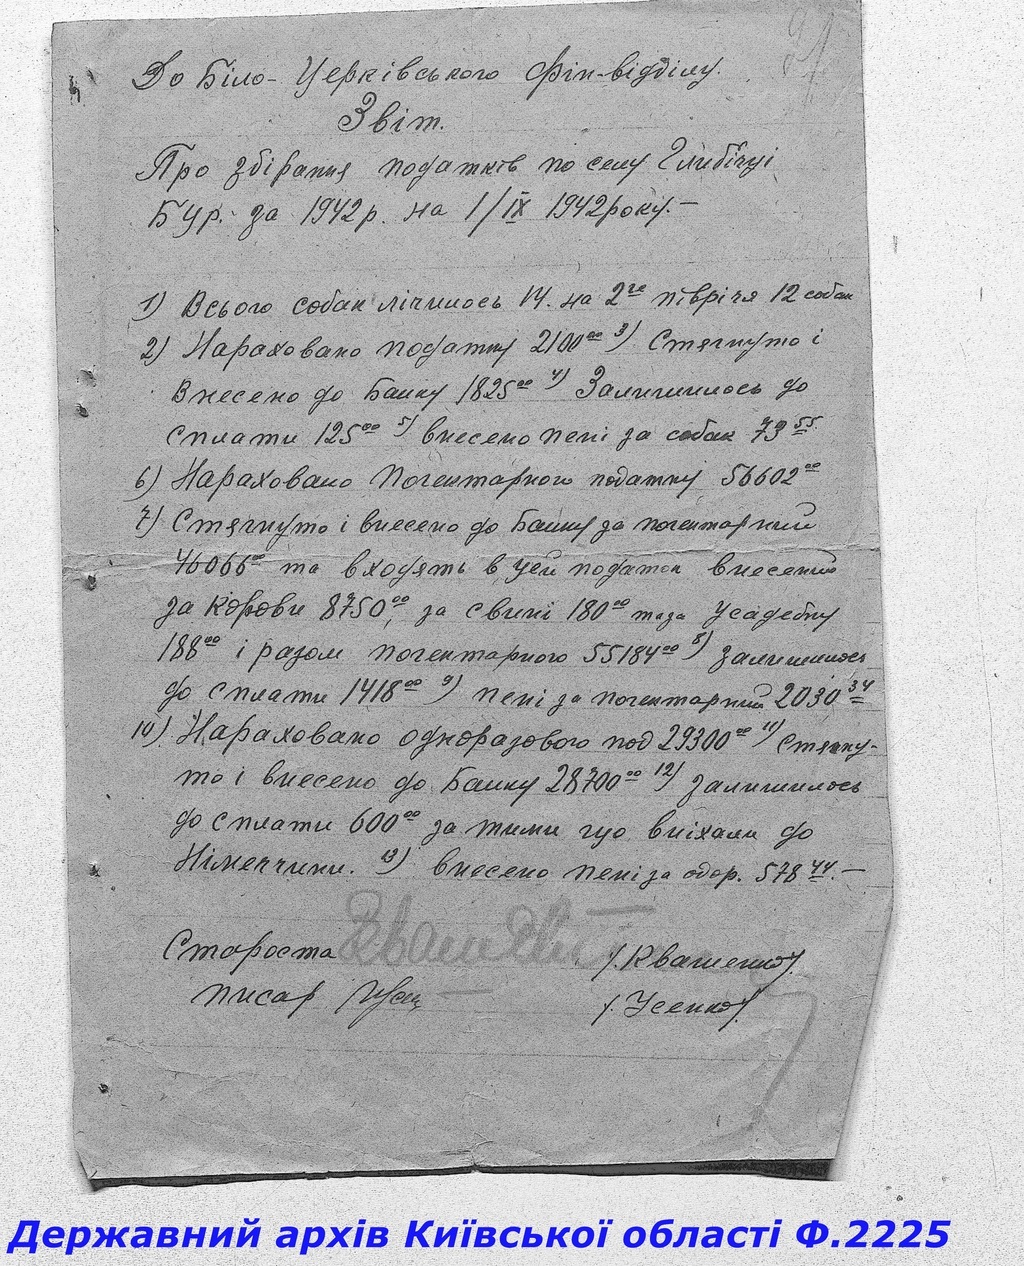 До Біло-Церківського Фін-відділу.
Звіт.
Про збірання податків по селу Глибічці
Бур. за 1942р. на 1/IX 1942року.—
1) Всього собак лічилось 14. на 2ге піврічя 12 собак
2) Нараховано податку 2100⁰⁰ 3) Стягнуто і
внесено до Банку 1825⁰⁰ 4) Залишилось до
сплати 125⁰⁰ 5) внесено пені за собак 73⁵⁵
6) Нараховано Погектарного податку 56602⁰⁰
7) Стягнуто і внесено до Банку за погектарний
46066⁰⁰ та входять в цей податок внесений
за корови 8750⁰⁰, за свині 180⁰⁰ та за усадебну
188⁰⁰ і разом погектарного 55184⁰⁰ 8) залишилось
до сплати 1418⁰⁰ 9) пені за погектарний 2030³⁴
10) Нараховано одноразового под 29300⁰⁰ 11) Стягну-
то і внесено до Банку 28700⁰⁰ 12) залишилось
до сплати 600⁰⁰ за тими що виїхали до
Німеччини. 13) внесено пені за одор. 578⁴⁴.—
Староста /.Квашенко/.
писар /.Усенко/.
Державний архів Київської області Ф.2225